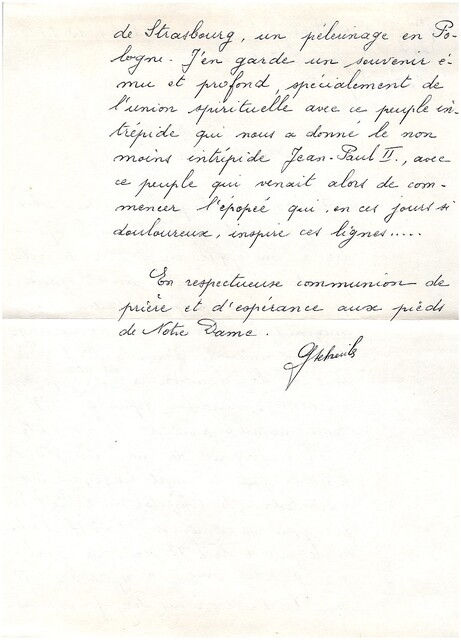 de Strasbourg, un pélerinage en Po-
logne. J'en garde un souvenir é-
mu et profond, spécialement de
l'union spirituelle avec ce peuple in-
trépide qui nous a donné le non
moins intrépide Jean-Paul II., avec
ce peuple qui venait alors de com-
mencer l'épopée qui, en ces jours si
douloureux, inspire ces lignes.....
En respectueuse communion de
prière et d'espérance aux pieds
de Notre Dame.